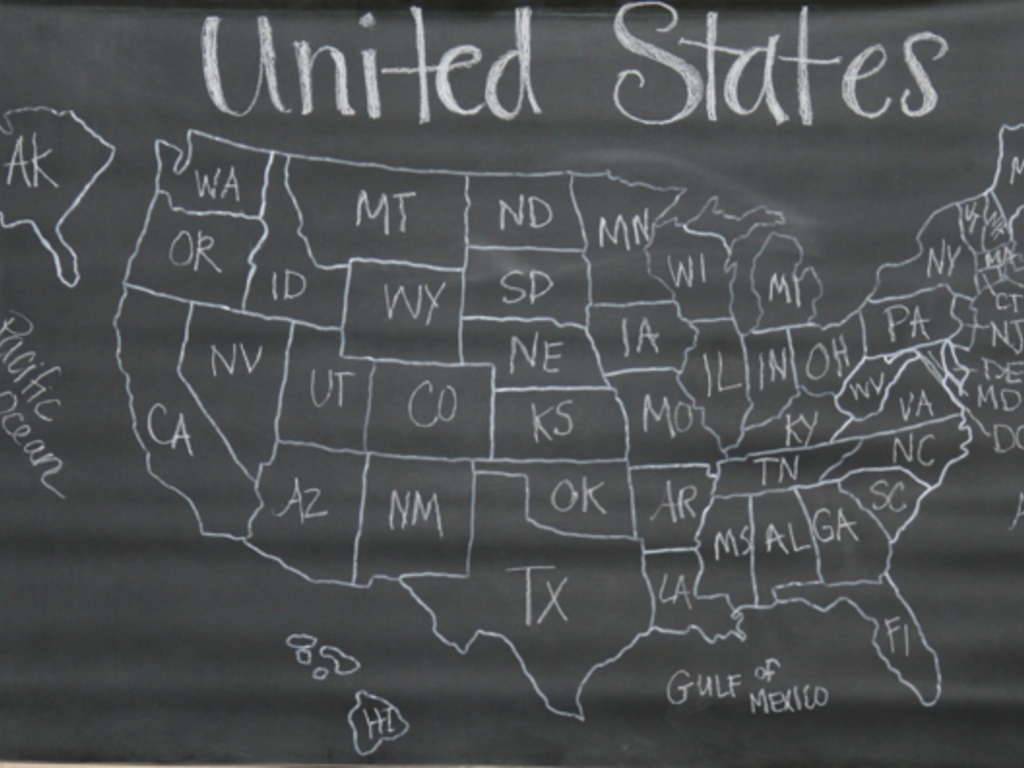 United States
AK
WA
MT
ND
MN
OR
ID
WY
SD
WI
MI
NY
MA
NV
UT
CO
NE
IA
IL
IN
OH
PA
CT
NJ
DE
MD
CA
KS
MO
KY
WV
VA
AZ
NM
OK
AR
TN
NC
SC
TX
LA
MS
AL
GA
Fl
HI
Pacific
Ocean
GULF of
MEXICO